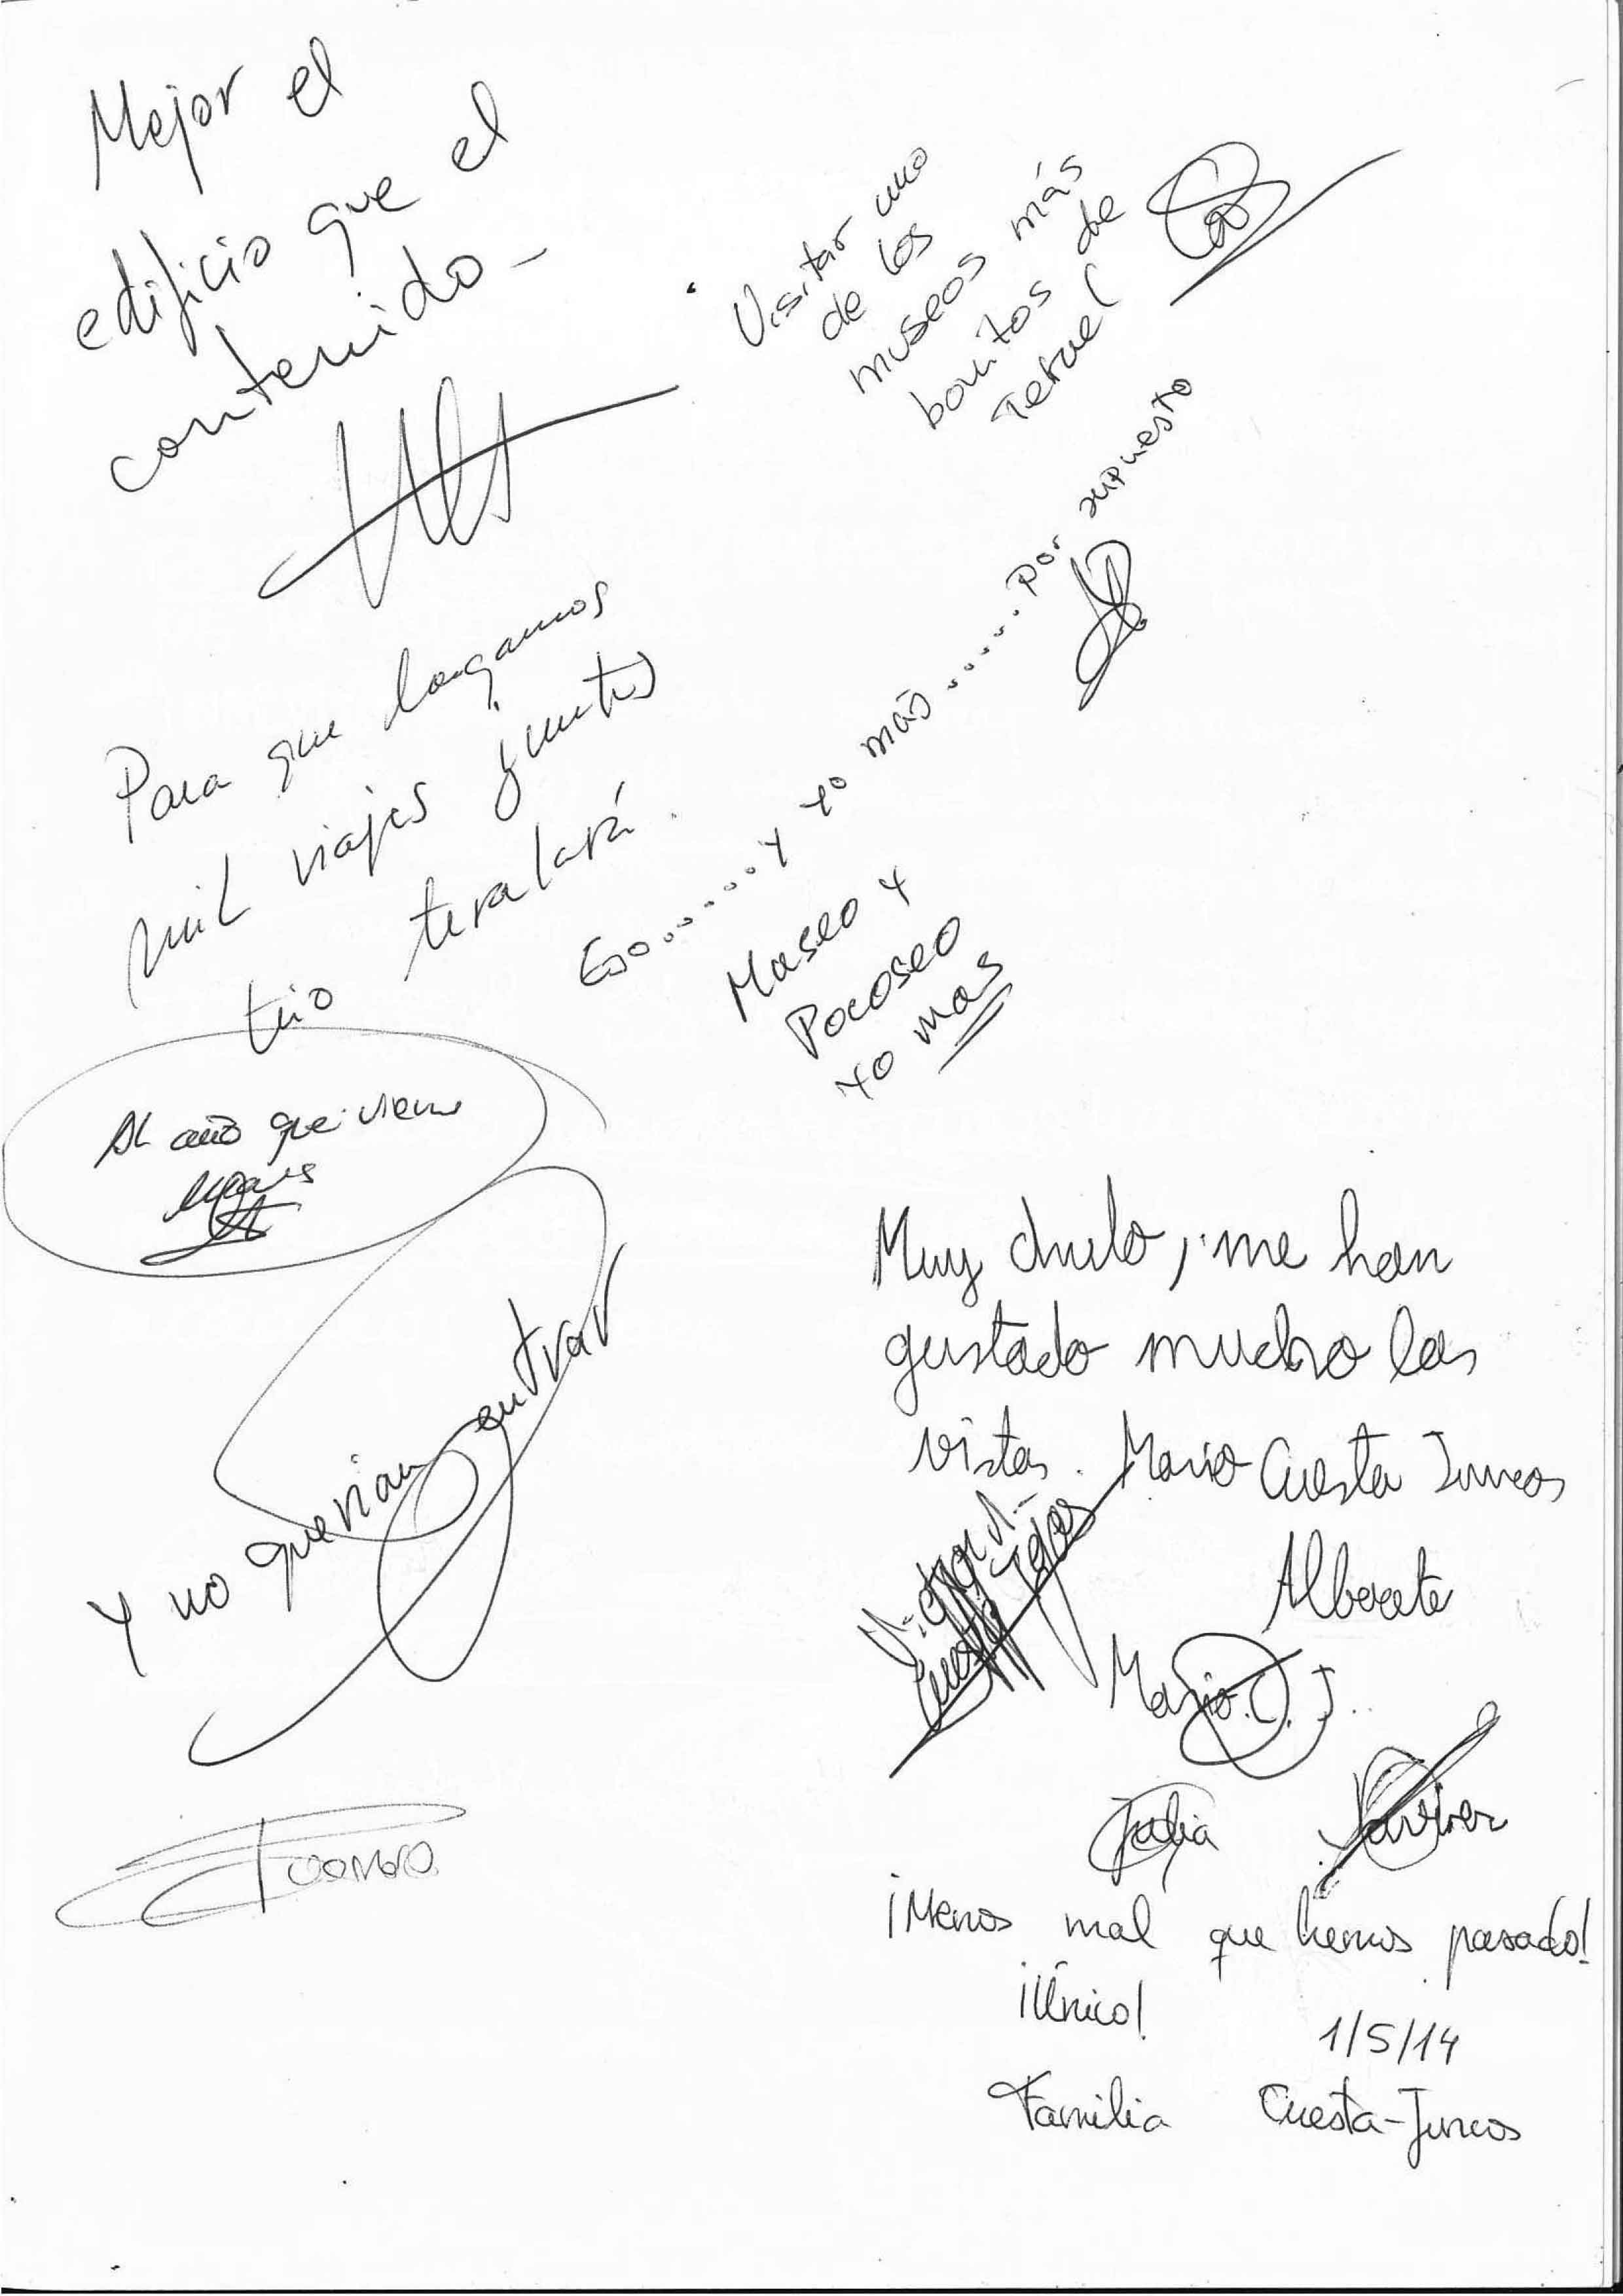 Mejor el
edificio que el
contenido -
Para que hagamos
mil viajes juntos
trio
Al año que viene
Y no querian entrar
Visitar uno
de los
museos más
bonitos de
Teruel
Eso....... y yo más...... por supuesto
Museo y
Pocoseo
yo mas
Muy chulo, me han
gustado mucho las
vistas. Mario Cuesta Juncos
Albacete
Mario C. J.
Julia Javier
¡Menos mal que hemos pasado!
¡Único!
1/5/14
Familia Cuesta-Juncos